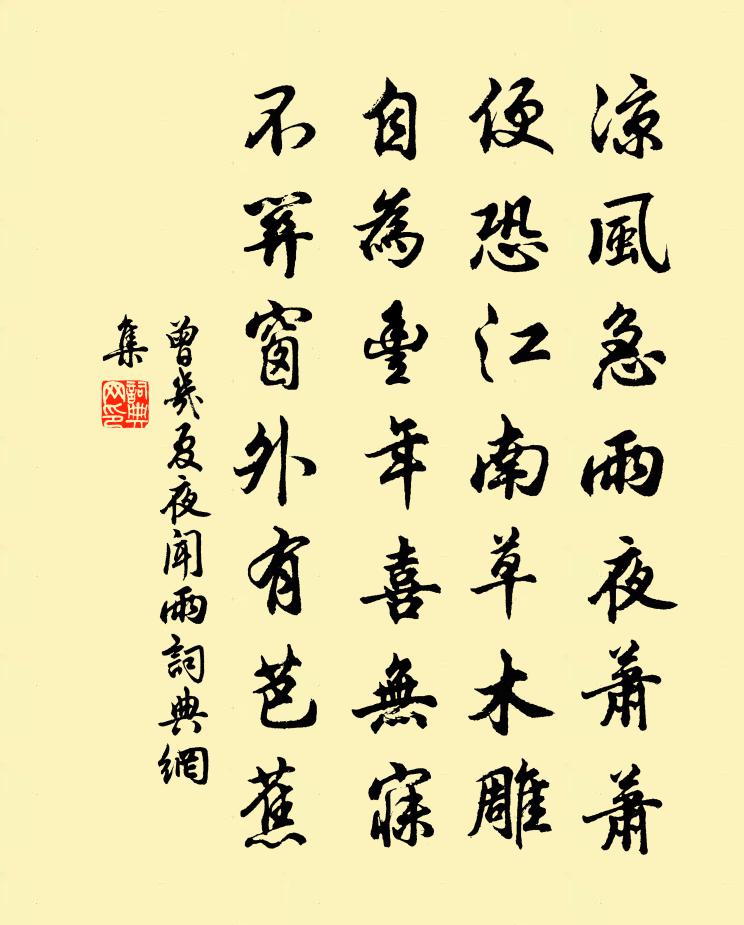 涼風急雨夜蕭蕭
便恐江南草木雕
自為豐年喜無寐
不關窗外有芭蕉
曾幾夏夜聞雨詞典網
集
詞典网印